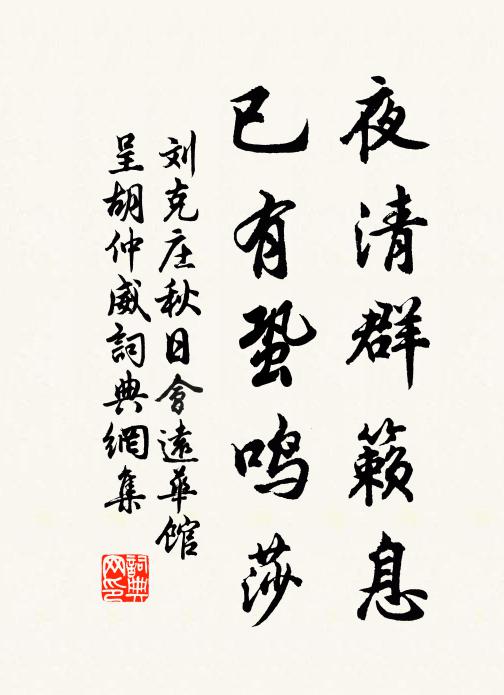 夜清群籁息
已有蛩鸣莎
刘克庄秋日会远华馆
呈胡仲威词典网集
词典网印